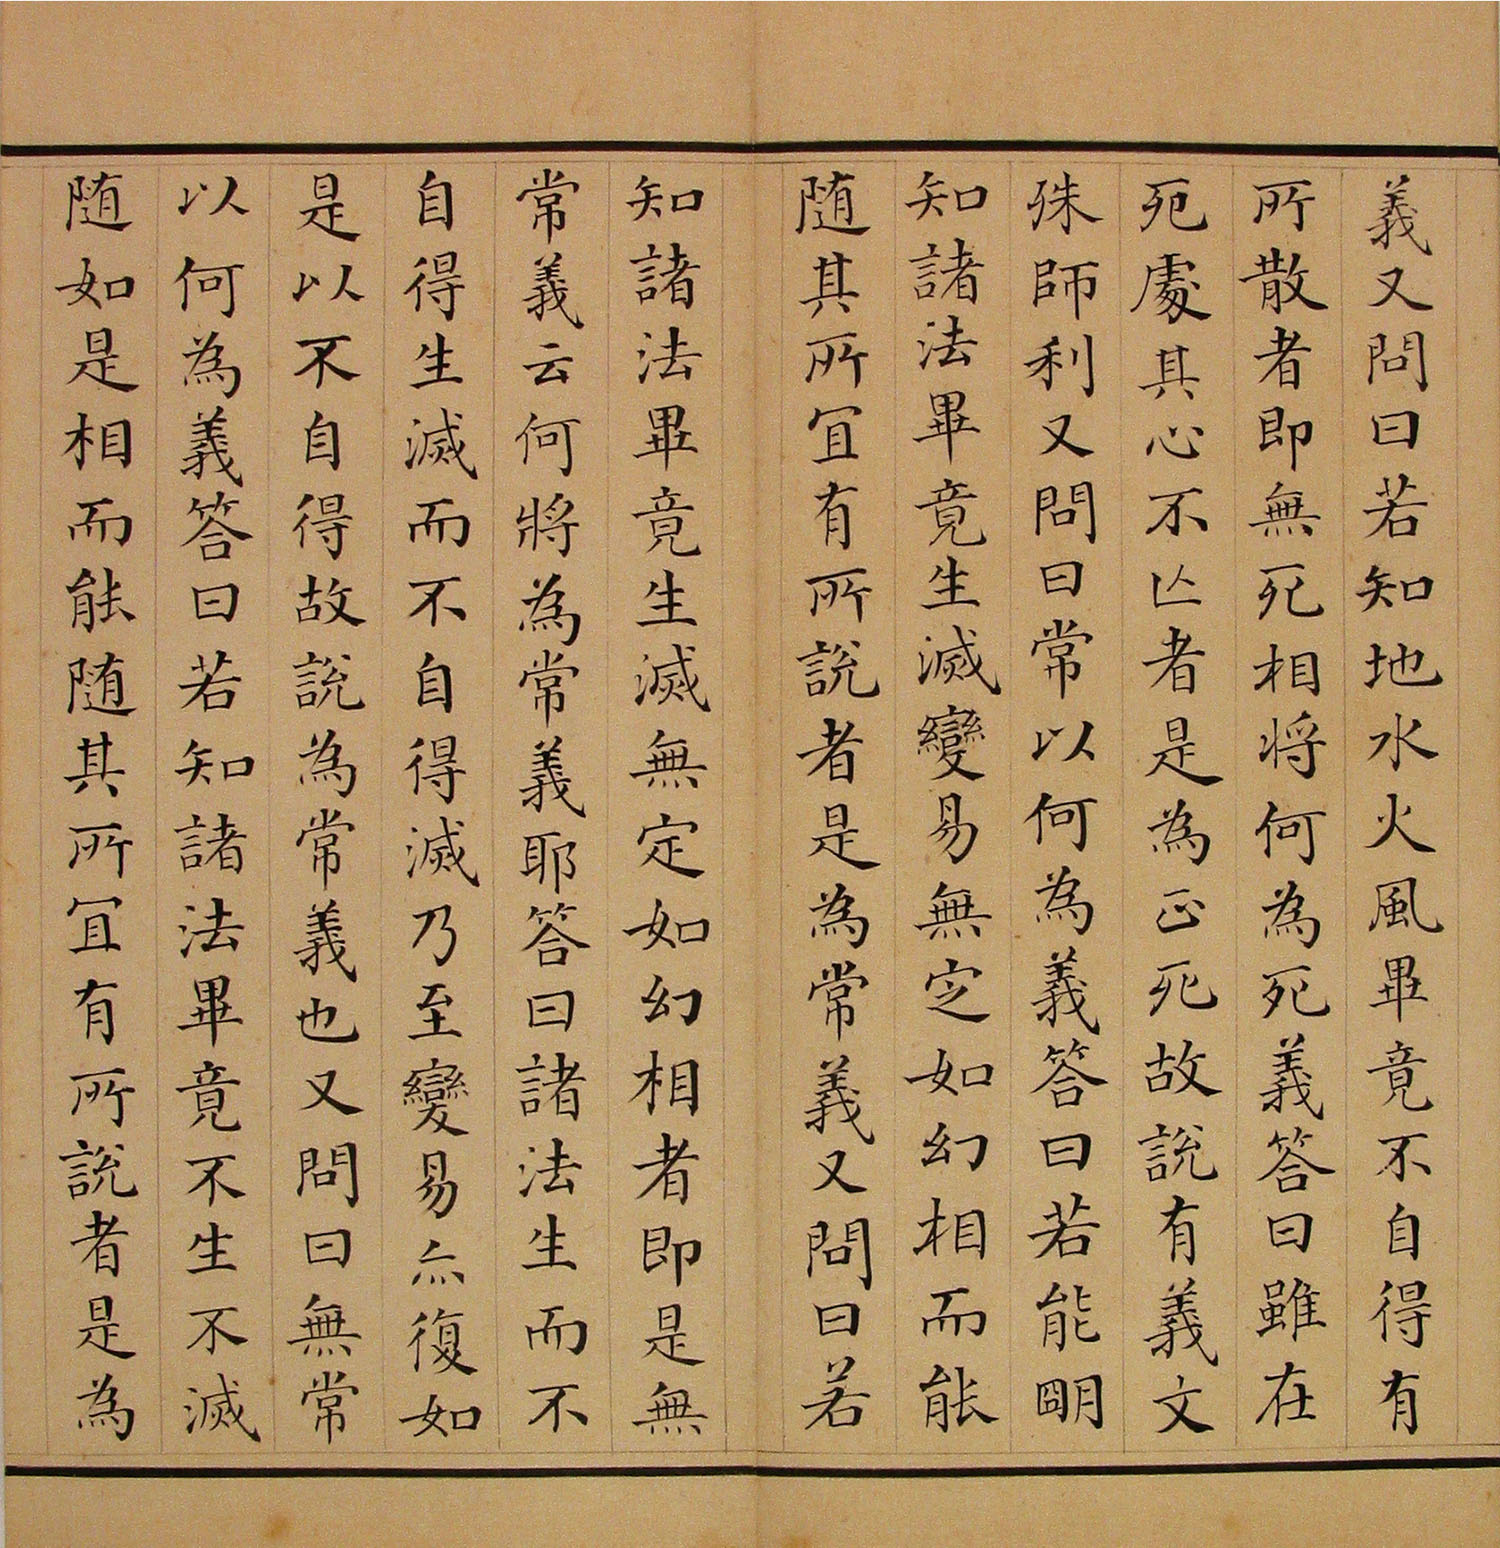 義又問曰若知地水火風畢竟不自得有
所散者即無死相將何為死義答曰雖在
死處其心不亡者是為正死故說有義文
殊師利又問曰常以何為義答曰若能明
知諸法畢竟生滅變易無定如幻相而能
随其所宜有所說者是為常義又問曰若
知諸法畢竟生滅無定如幻相者即是無
常義云何將為常義耶答曰諸法生而不
自得生滅而不自得滅乃至變易亦復如
是以不自得故說為常義也又問曰無常
以何為義答曰若知諸法畢竟不生不滅
随如是相而能随其所宜有所說者是為